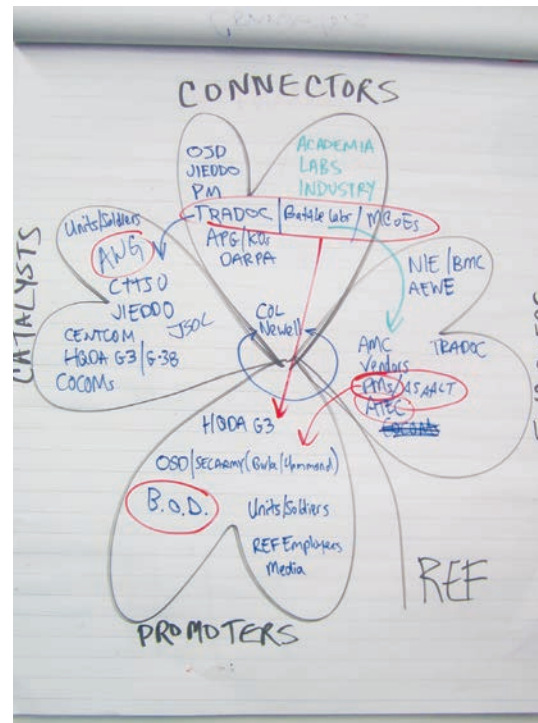 CONNECTORS
OSD
JIEDDO
PM
TRADOC / Battle Labs / MCoEs
APG/KOs
DARPA
ACADEMIA
LABS
INDUSTRY
CATALYSTS
Units/Soldiers
ANG
CTTSO
JIEDDO
JSOC
CENTCOM
HQDA G3/G-38
COCOMs
COL
Newell
NIE/BMC
AEWE
AMC
Vendors
TRADOC
PMs/ASAALT
ATEC
COCOMs
HQDA G3
OSD/SECARMY
B.O.D.
Units/Soldiers
REF Employees
Media
PROMOTERS
REF